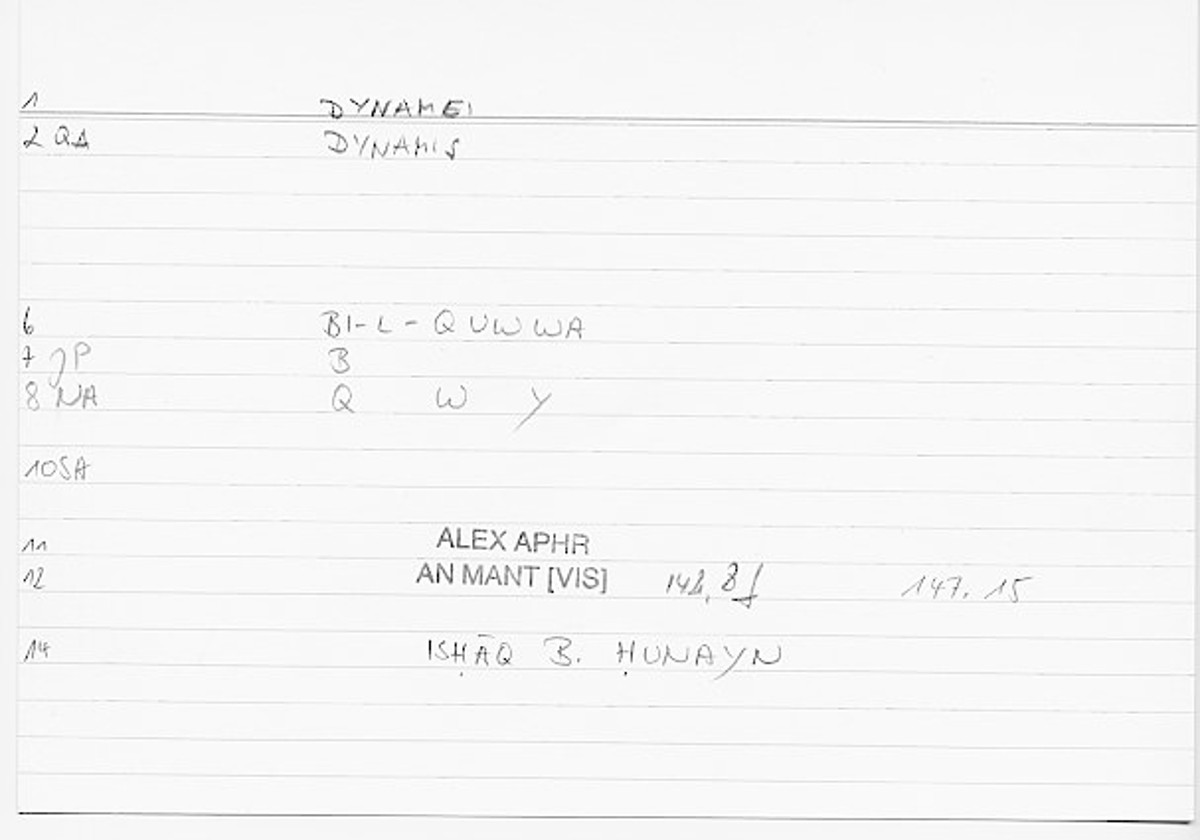 1 DYNAMEI
2 QA DYNAMIS
6 BI-L-QUWWA
7 JP B
8 NA Q W Y
10 SA
11 ALEX APHR
12 AN MANT [VIS] 142, 8f 147. 15
14 ISḤĀQ B. ḤUNAYN